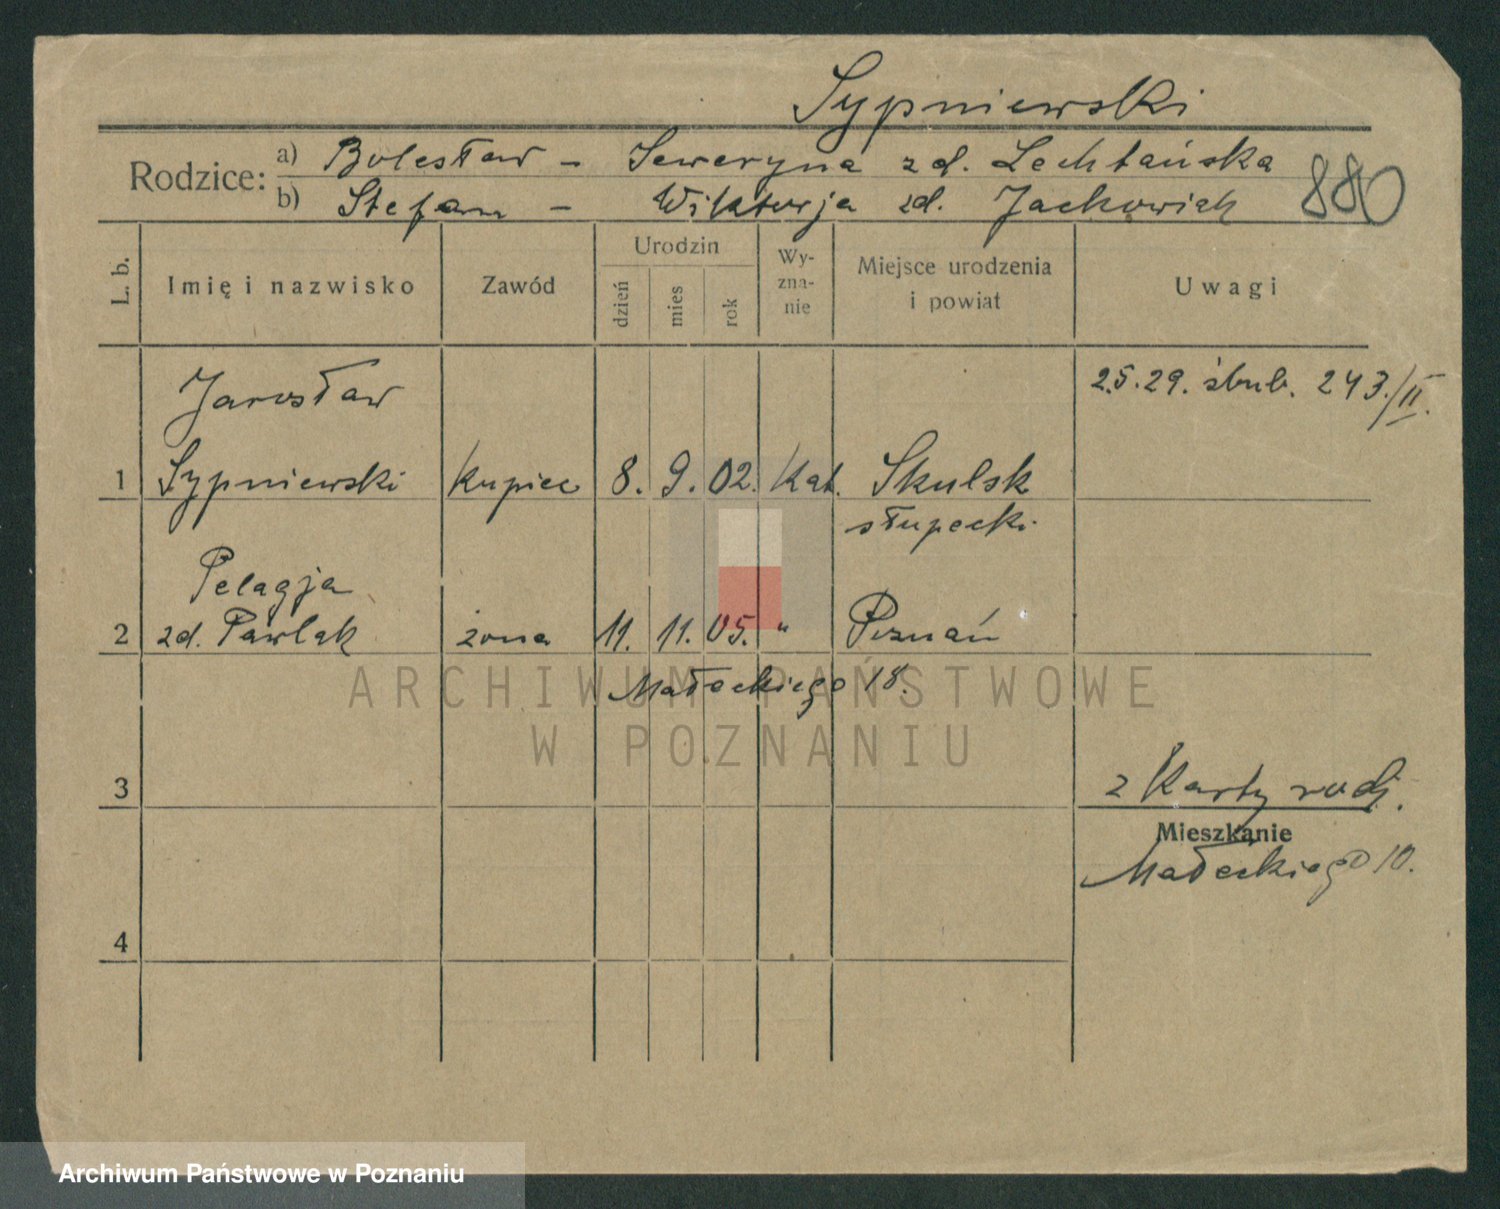 Sypniewski
Rodzice: a) Bolesław - Seweryna zd. Lechtańska
b) Stefan - Wiktorja zd. Jackowiak
880
L. b. Imię i nazwisko Zawód Urodzin dzień mies rok Wyzna-nie Miejsce urodzenia i powiat Uwagi
Jarosław 2.5.29. ślub. 243/II.
1 Sypniewski kupiec 8. 9. 02. Kat. Skulsk
słupecki
Pelagja
2 zd. Pawlak żona 11. 11. 05. " Poznań
Małeckiego 18.
ARCHIWUM PAŃSTWOWE
W POZNANIU
3 z Karty rodz.
Mieszkanie
Małeckiego 10.
4
Archiwum Państwowe w Poznaniu